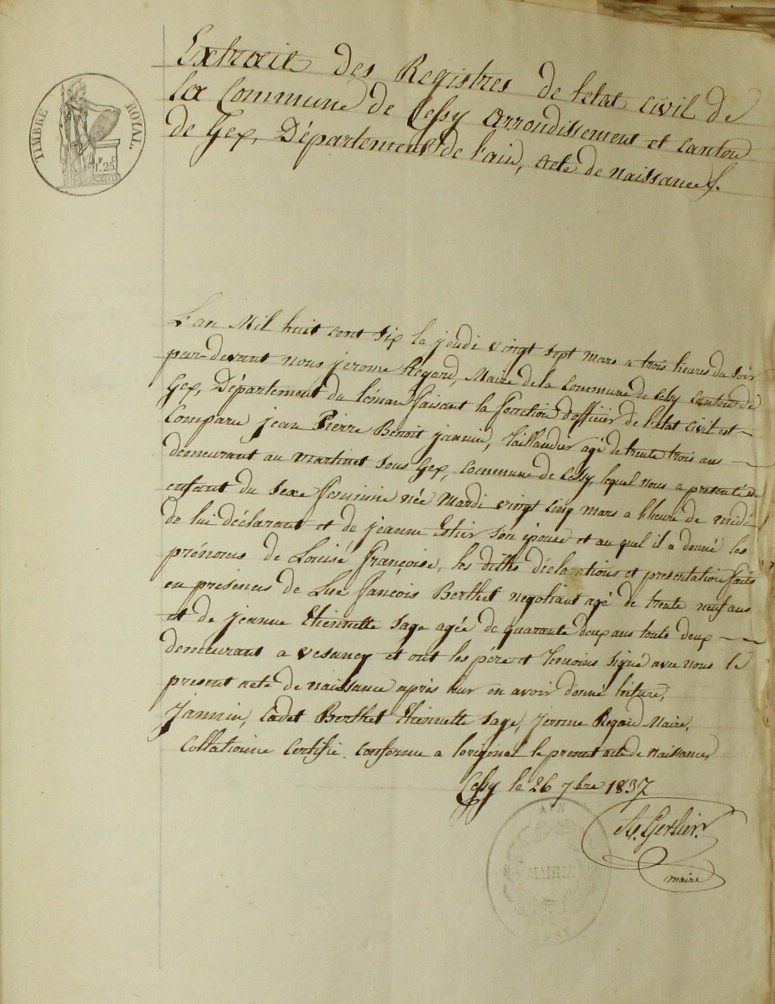 TIMBRE ROYAL.
1.F 25.C
Extrait des Registres de l'etat civil de
la Commune de Cessy arrondissement et canton
de Gex, Département de l'ain, acte de naissances.
L'an Mil huit cent six le jeudi vingt sept mars a trois heures du soir
par-devant nous jerome Regard, Maire de la Commune de Cessy canton de
Gex, Département du Léman faisant la fonction d'officier de l'etat civil est
Comparu jean Pierre Benoit jannin, Taillandier agé de trente trois ans
demeurant au martinet sous Gex, commune de Cessy, lequel nous a presenté un
enfant du sexe feminin née Mardi vingt cinq mars a l'heure de midi
de lui déclarant et de jeanne son épouse et au quel il a donné les
prénoms de Louise françoise, les dittes déclarations et presentation faites
en présences de Luc françois Berthet negotiant agé de trente neuf ans
et de jeanne Etiennette Sage agée de quarante deux ans touts deux
demeurant a Vesancy et ont les pére et temoins signé avec nous le
present acte de naissance après leur en avoir donné lecture,
Jannin, Cadet Berthet Etiennette Sage, Jerome Regard Maire,
Collationné Certifié Conforme a l'original le present acte de naissance,
Cessy le 26 7bre 1837
maire
AIN
MAIRIE